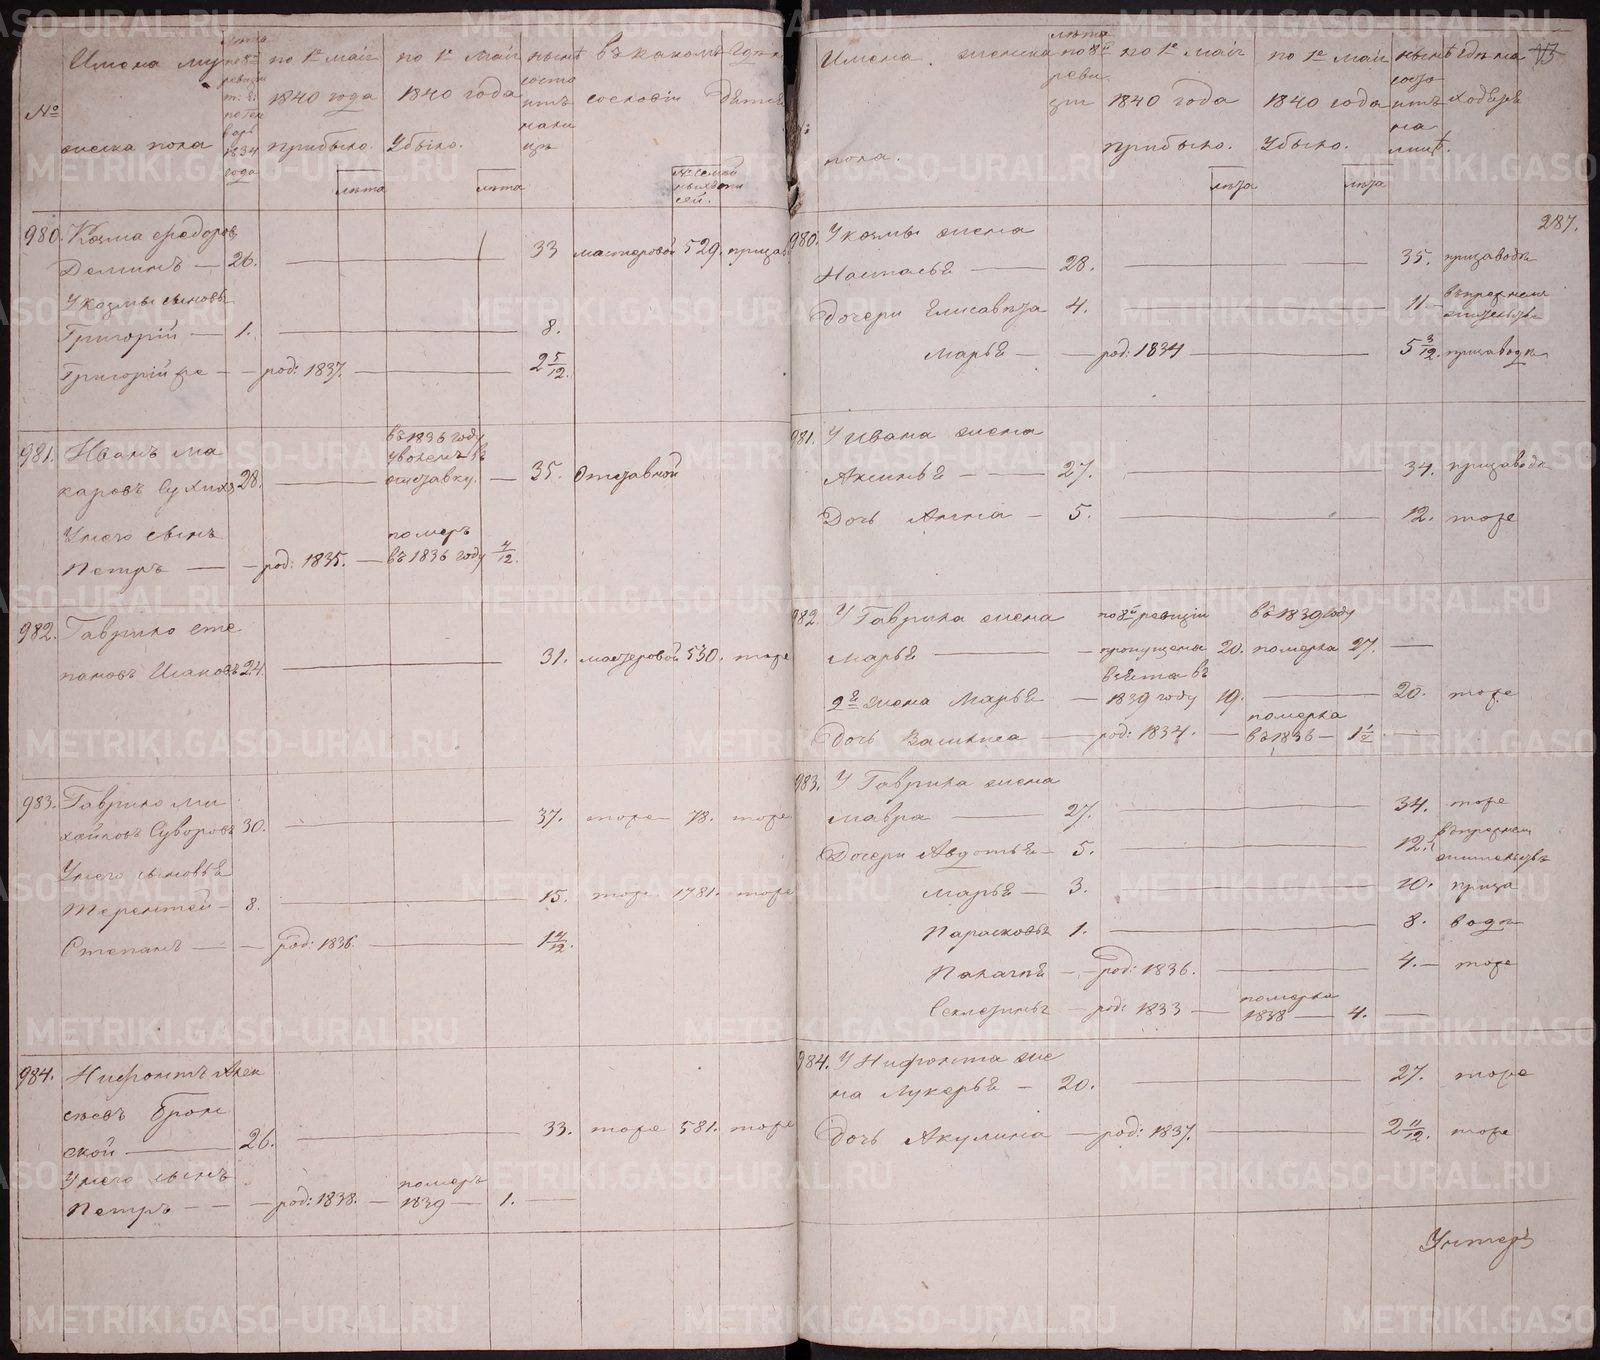 №
Имена му
жеска пола
лѣта
по 8й
ревизіи
1834
года
по 1е маія
1840 года
прибыло.
лѣта
по 1е маія
1840 года
Убыло.
лѣта
нынѣ
состо
итъ
нали
цѣ
въ какомъ
сословіи
980. Козма Ѳедоровъ
Деминъ — 26. — 33 мастеровой 529. призав
У козмы сыновья
Григорій — 1. — 8.
Григорій же — род: 1837. — 2 5/12.
981. Иванъ Ма
каровъ Сухихъ 28. — въ 1836 году уволенъ въ отставку. — 35. Отставной
У него сынъ
Петръ — род: 1835. — померъ въ 1836 году 4/12.
982. Гаврило Сте
пановъ 24. — 31. мастеровой 530. тоже
983. Гаврило Ми
хайловъ Суворовъ 30. — 37. тоже 78. тоже
У него сыновья
Терентей — 8. — 15. тоже 1781. тоже
Степанъ — род: 1836. — 1
984. Нифонтъ Алек
сѣевъ Брон
ской — 26. — 33. тоже 581. тоже
У него сынъ
Петръ — род: 1838. — померъ 1839 — 1. —
Имена женска
пола.
лѣта
по 8й
реви
зіи
по 1е маія
1840 года
прибыло.
лѣта
по 1е маія
1840 года
Убыло.
лѣта
нынѣ
состо
итъ
на
лицѣ.
гдѣ на
ходятся
287.
980. У козмы жена
Настасья — 28. — 35. призаводѣ
Дочери Елисавета 4. — 11.
Марья — род: 1834 — 5 3/12. призаводѣ
981. У Ивана жена
Аксинья — 27. — 34. призаводѣ
Дочь Анна — 5. — 12. тоже
982. У Гаврила жена
Марья — по 8й ревизіи пропущена 20. въ 1839 году померла 27. —
2я жена Марья — взята въ 1839 году 19. — 20. тоже
Дочь — род: 1834. — померла въ 1836 — 1 1/2 —
983. У Гаврила жена
Мавра — 27. — 34. тоже
Дочери Авдотья — 5. — 12.
Марья — 3. — 10. приза
Парасковья 1. — 8. водѣ
Палагея — род: 1836. — 4. — тоже
род: 1833 — померла 1838 — 4. —
984. У Нифонта же
на Лукерья — 20. — 27. тоже
Дочь Акулина — род: 1837. — 2 11/12. тоже
METRIKI.GASO-URAL.RU